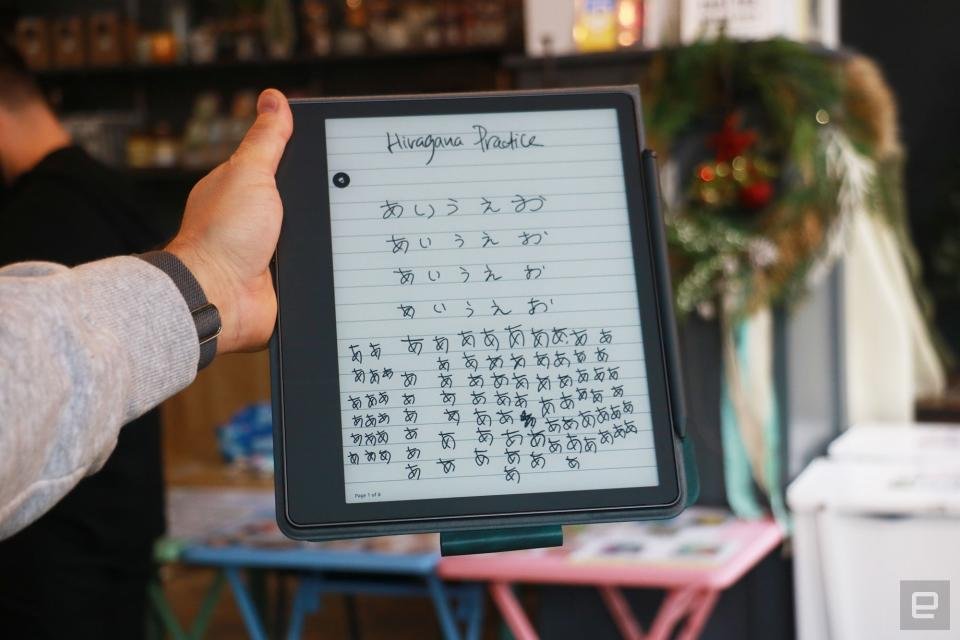 Hiragana Practice
あいうえお
あいうえお
あいうえお
あいうえお
ああ ああああああああ
ああああああああ
あああ ああああああああああ
あああ ああああああああああ
あああ ああああ ああああああ
あああ ああああああああああ
あああ ああああああ
ああああああ
あ
Page 1 of 8